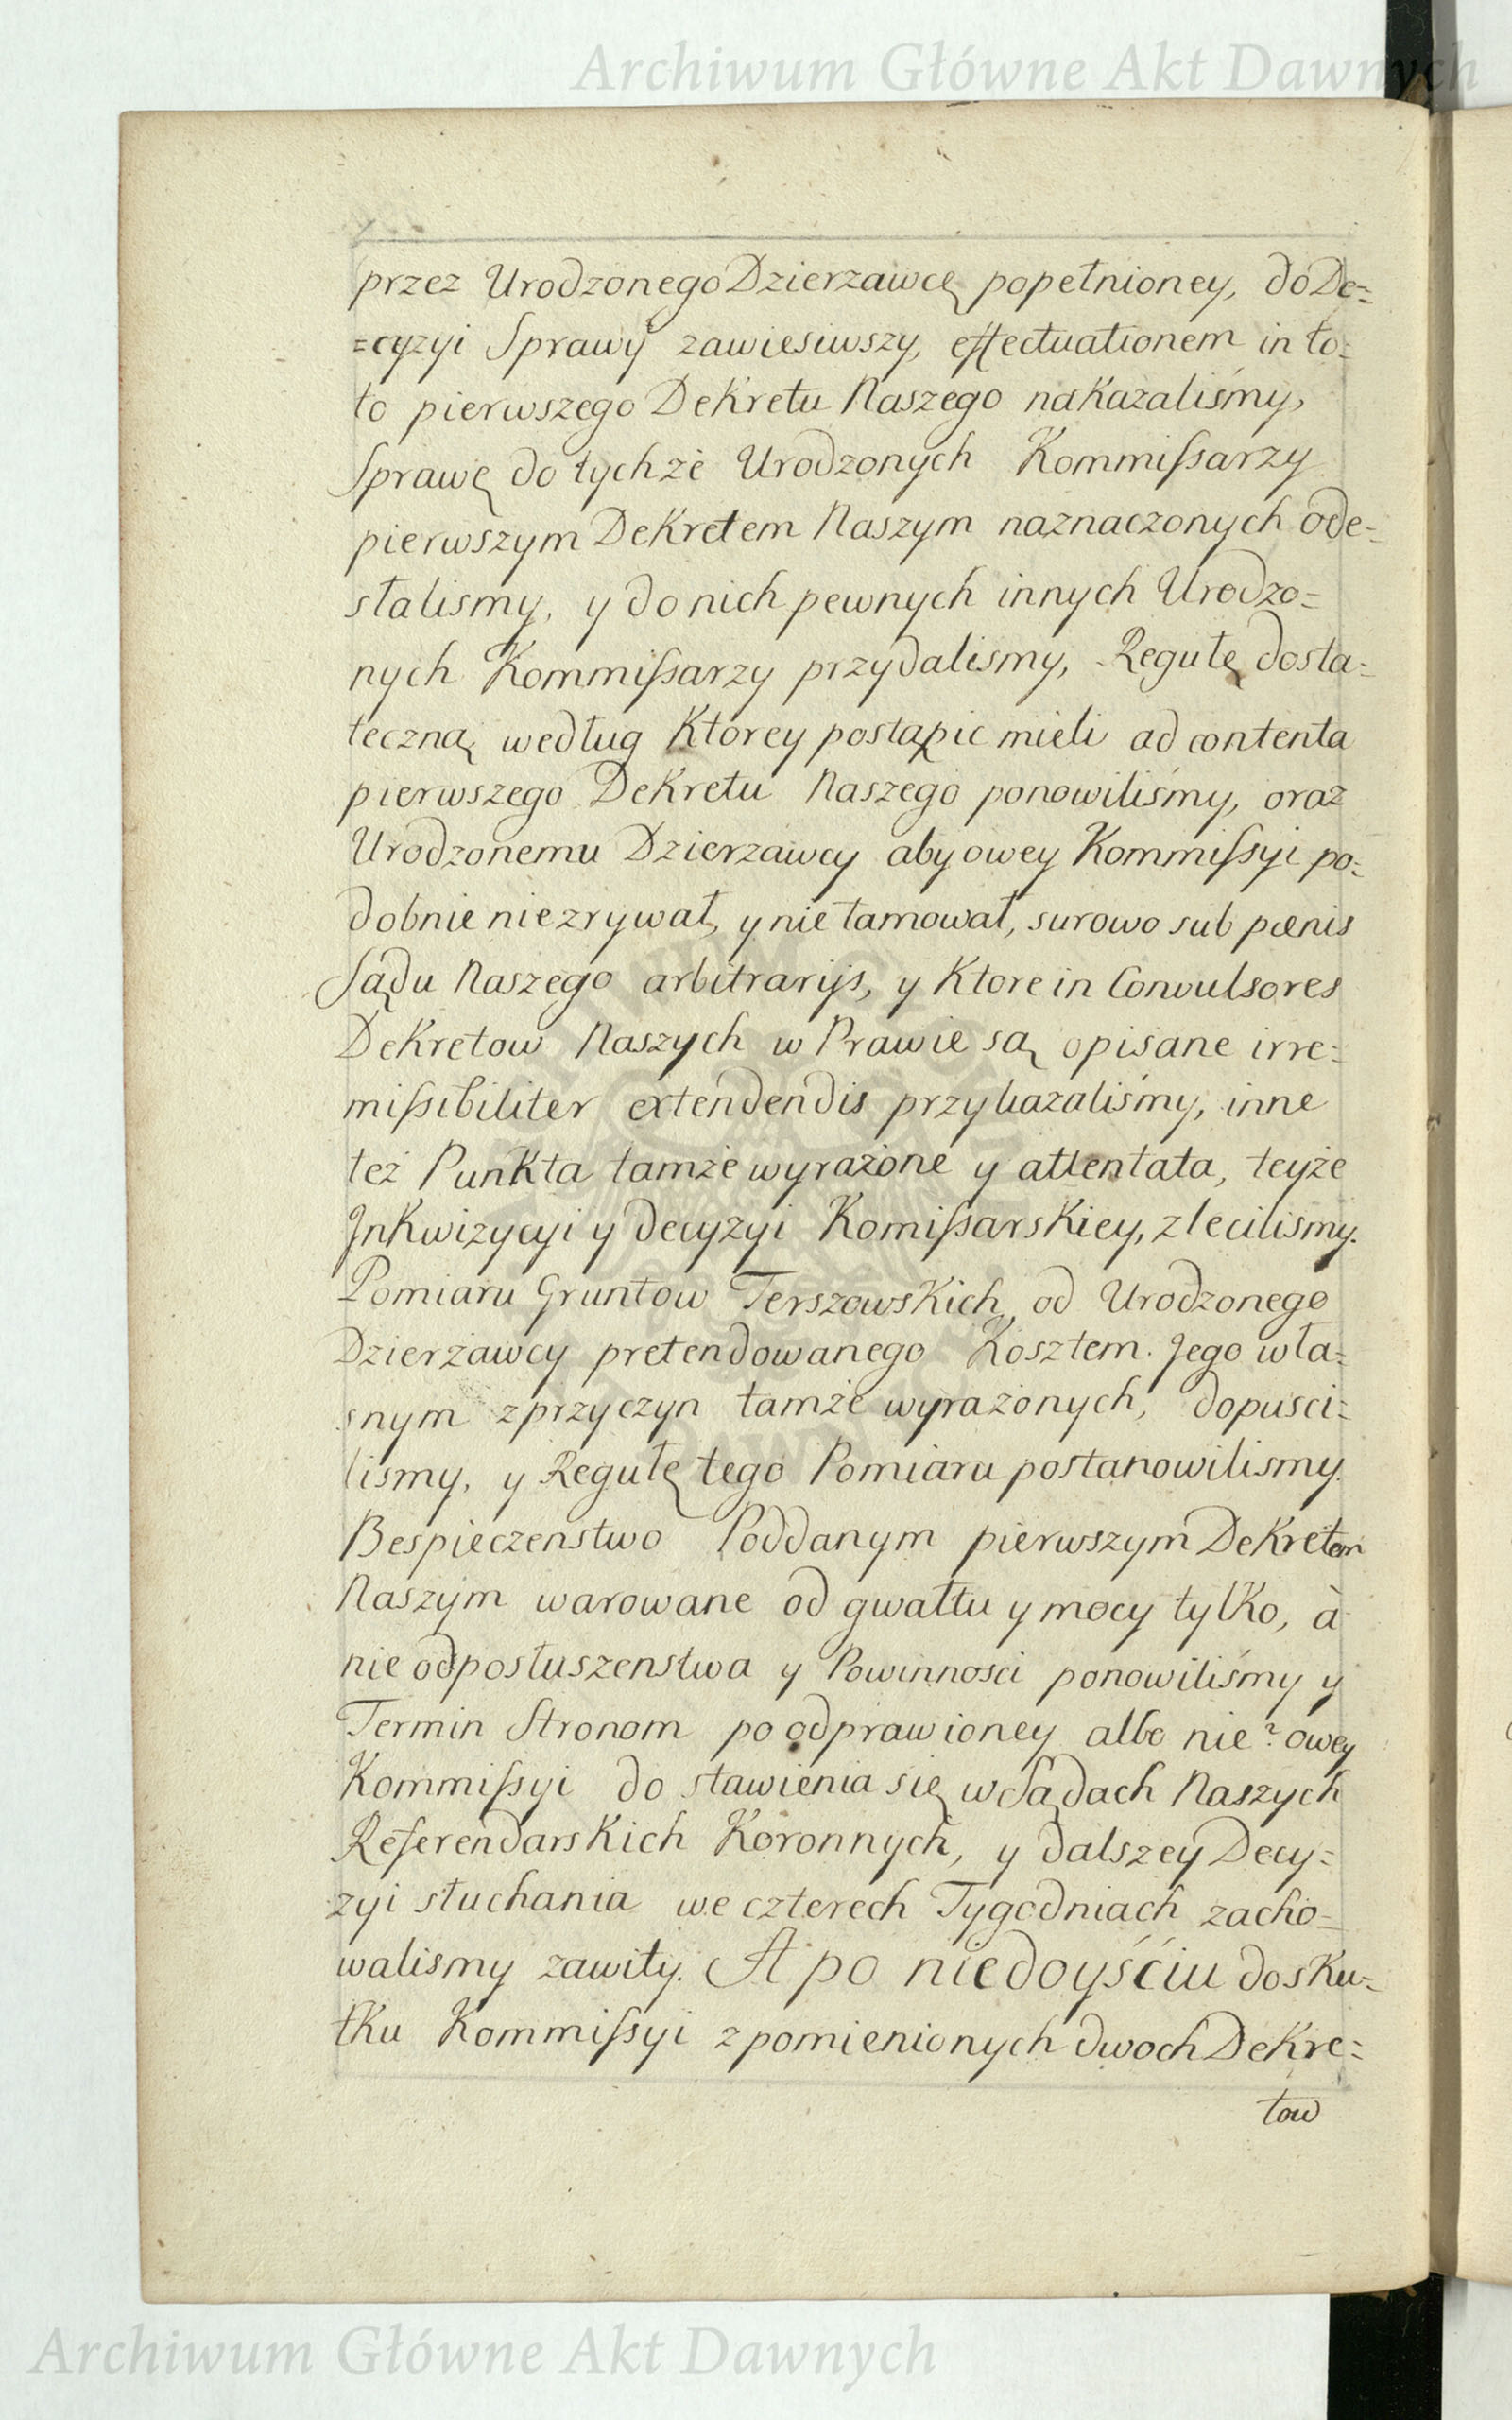 Archiwum Główne Akt Dawnych
przez Urodzonego Dzierzawcę popełnioney, do De=
=cyzyi Sprawy zawiesiwszy, effectuationem in to=
to pierwszego Dekretu Naszego nakazaliśmy,
Sprawę do tychże Urodzonych Kommiſsarzy
pierwszym Dekretem Naszym naznaczonych ode=
słalismy, y do nich pewnych innych Urodzo=
nych Kommiſsarzy przydalismy, Regułę dosta=
teczną według Ktorey postąpic mieli ad contenta
pierwszego Dekretu Naszego ponowiliśmy, oraz
Urodzonemu Dzierzawcy aby owey Kommiſsyi po=
dobnie niezrywał, y nie tamował, surowo sub pœnis
Sądu Naszego arbitrarijs, y Ktore in Convulsores
Dekretow Naszych w Prawie są opisane irre=
miſsibiliter extendendis przykazaliśmy, inne
też Punkta tamże wyrażone y attentata, teyże
Jnkwizycyi y decyzyi Komiſsarskiey, zlecilismy.
Pomiaru Gruntow Terszowskich, od Urodzonego
Dzierżawcy pretendowanego Kosztem Jego wła=
snym z przyczyn tamże wyrażonych, dopusci=
lismy, y Regułę tego Pomiaru postanowilismy.
Bespieczenstwo Poddanym pierwszym Dekretem
Naszym warowane od gwałtu y mocy tylko, à
nie od posłuszenstwa y Powinnosci ponowiliśmy y
Termin Stronom po odprawioney albo nie? owey
Kommiſsyi do stawienia się w Sądach Naszych
Referendarskich Koronnych, y dalszey Decy=
zyi słuchania we czterech Tygodniach zacho=
walismy zawity. A po niedoyściu do sku=
tku Kommiſsyi z pomienionych dwoch Dekre=
tow
Archiwum Główne Akt Dawnych